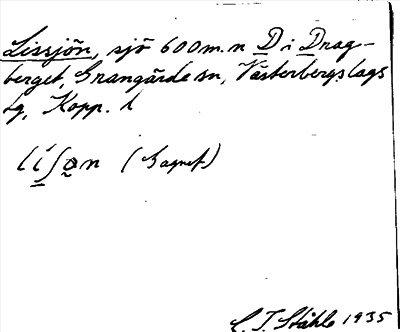 Lissjön, sjö 600 m. n D i Drag-
berget, Grangärde sn, Västerbergslags
tg, Kopp. l
(Bagnef)
C. I. Ståhle 1935